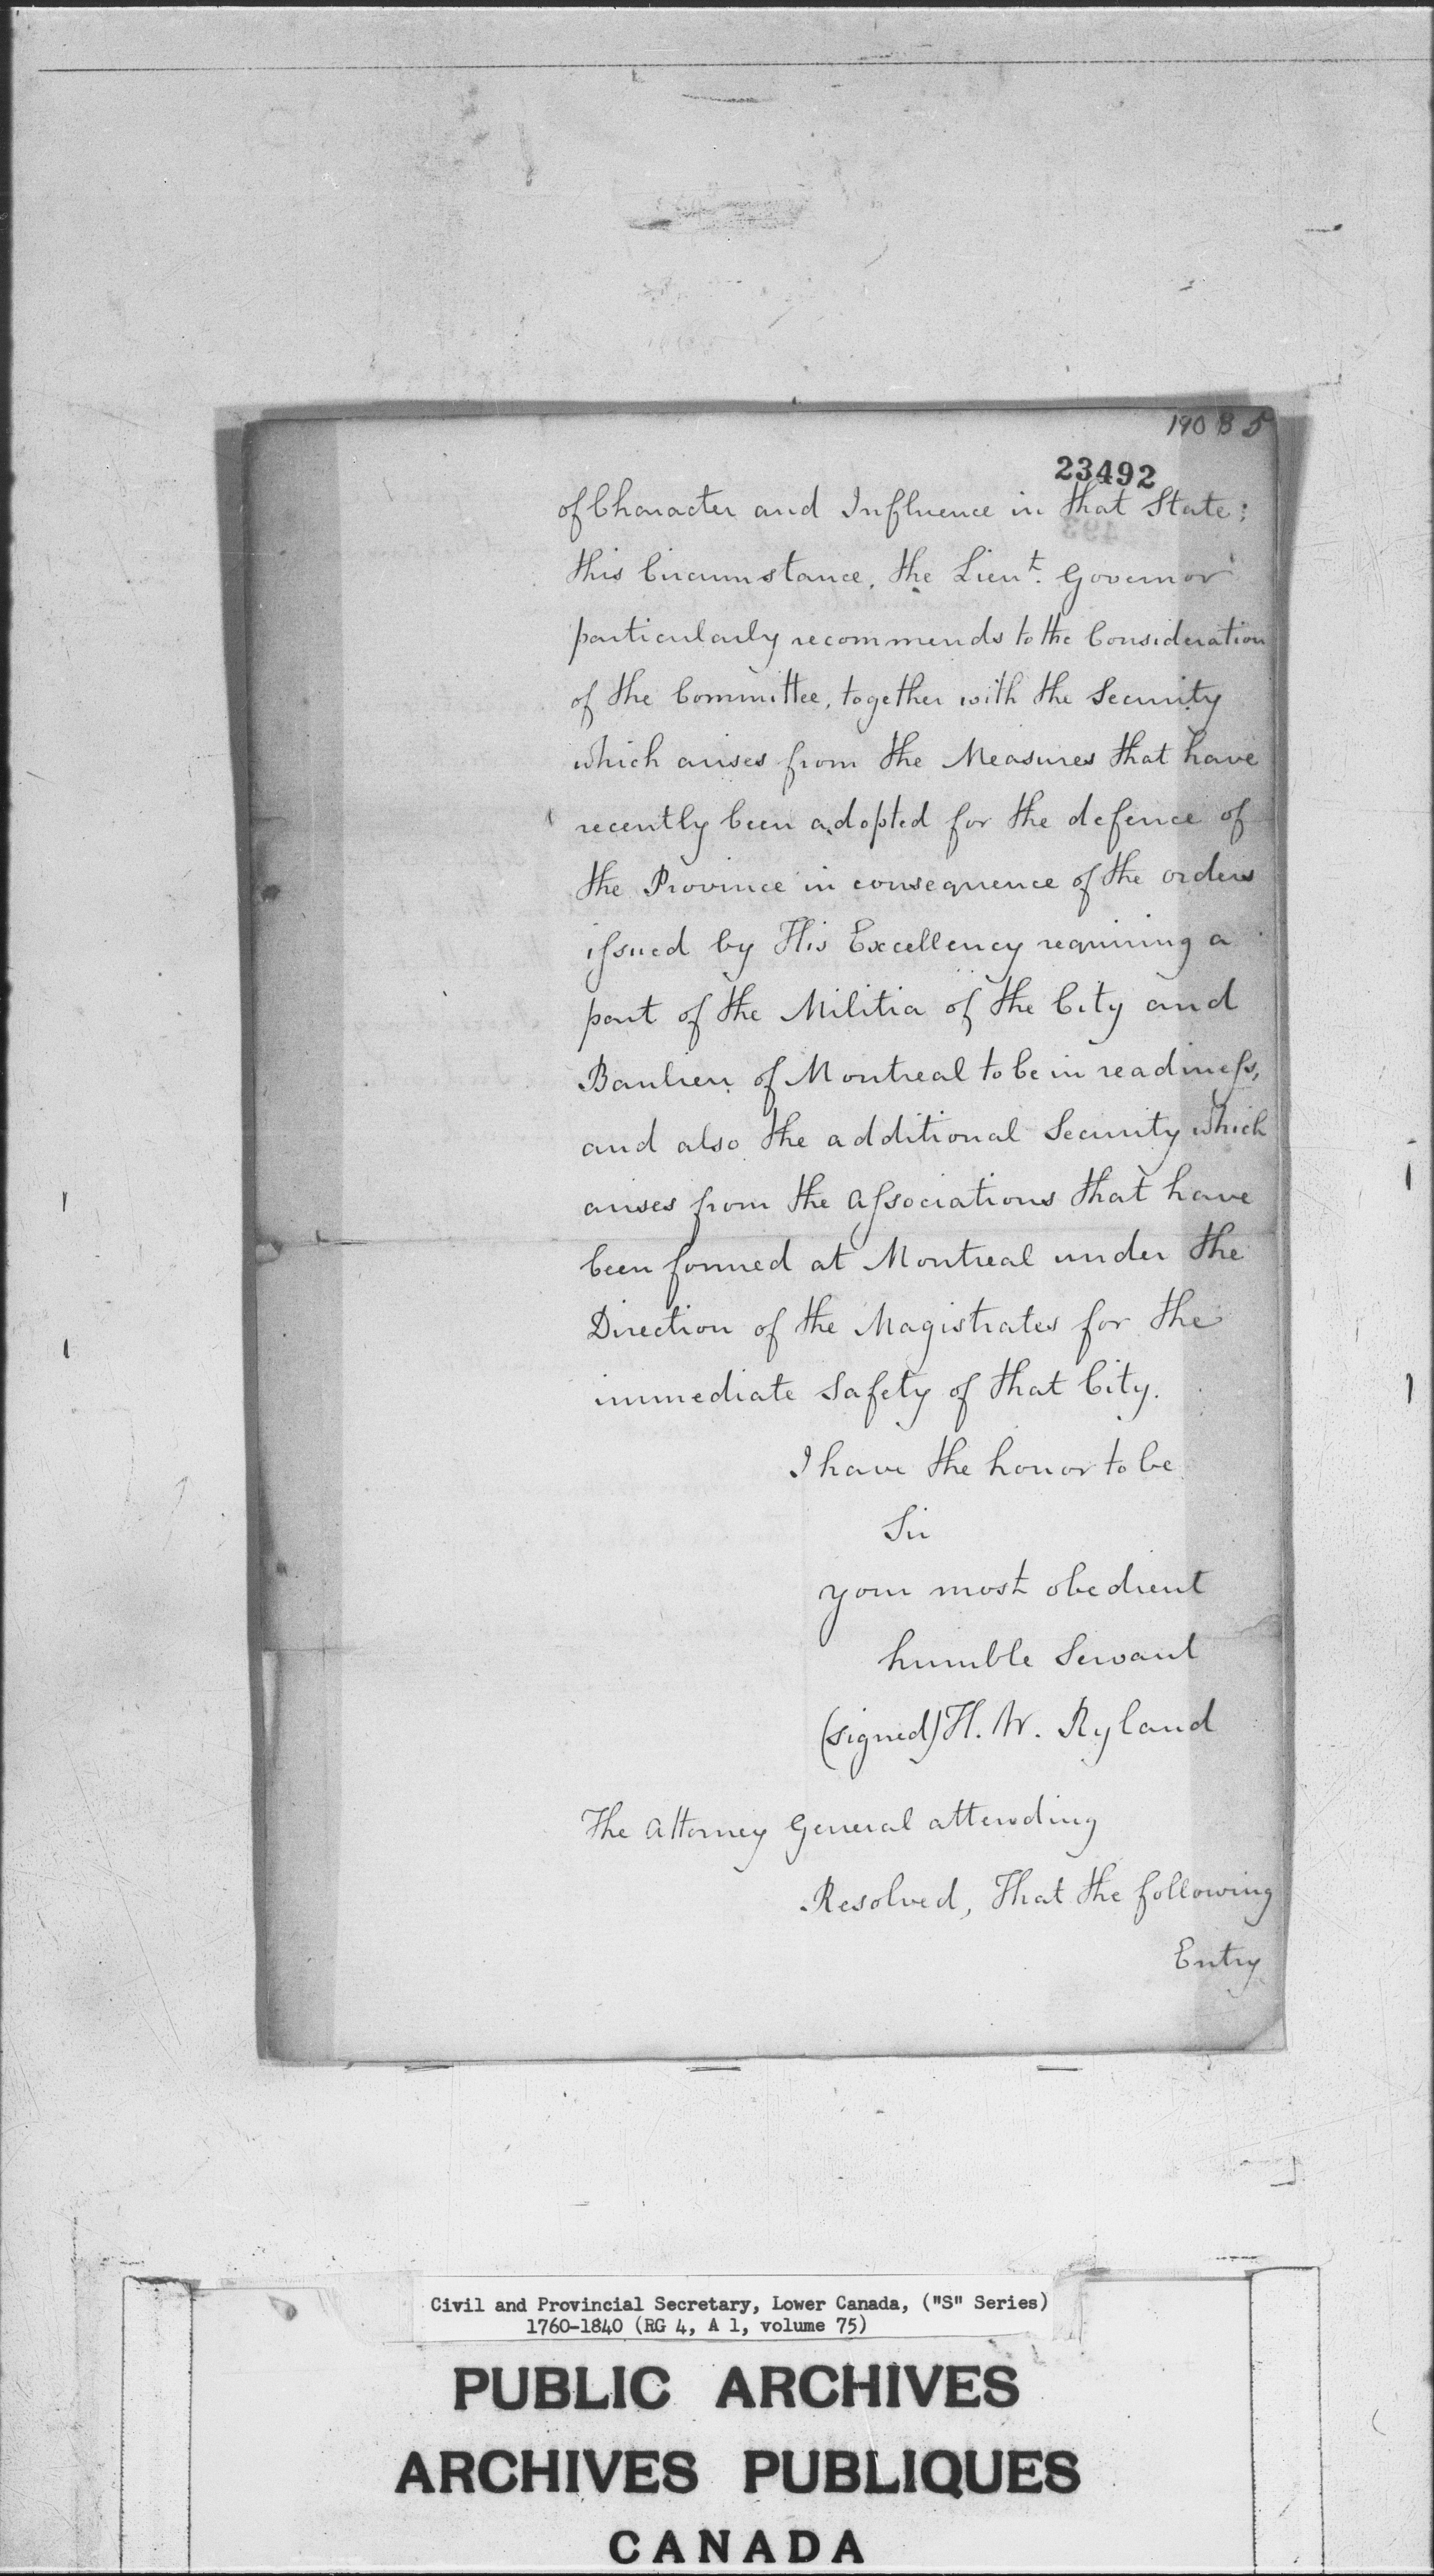 190 B 5
23492
of Character and Influence in that State;
this Circumstance, the Lieut. Governor
particularly recommends to the Consideration
of the Committee, together with the Security
which arises from the Measures that have
recently been adopted for the defence of
the Province in consequence of the orders
issued by His Excellency requiring a
part of the Militia of the City and
Banlieu of Montreal to be in readiness,
and also the additional Security which
arises from the Associations that have
been formed at Montreal under the
Direction of the Magistrates for the
immediate safety of that City.
I have the honor to be
Sir
your most obedient
humble Servant
(signed) H. W. Ryland
The Attorney General attending
Resolved, That the following
Entry
Civil and Provincial Secretary, Lower Canada, ("S" Series)
1760-1840 (RG 4, A 1, volume 75)
PUBLIC ARCHIVES
ARCHIVES PUBLIQUES
CANADA